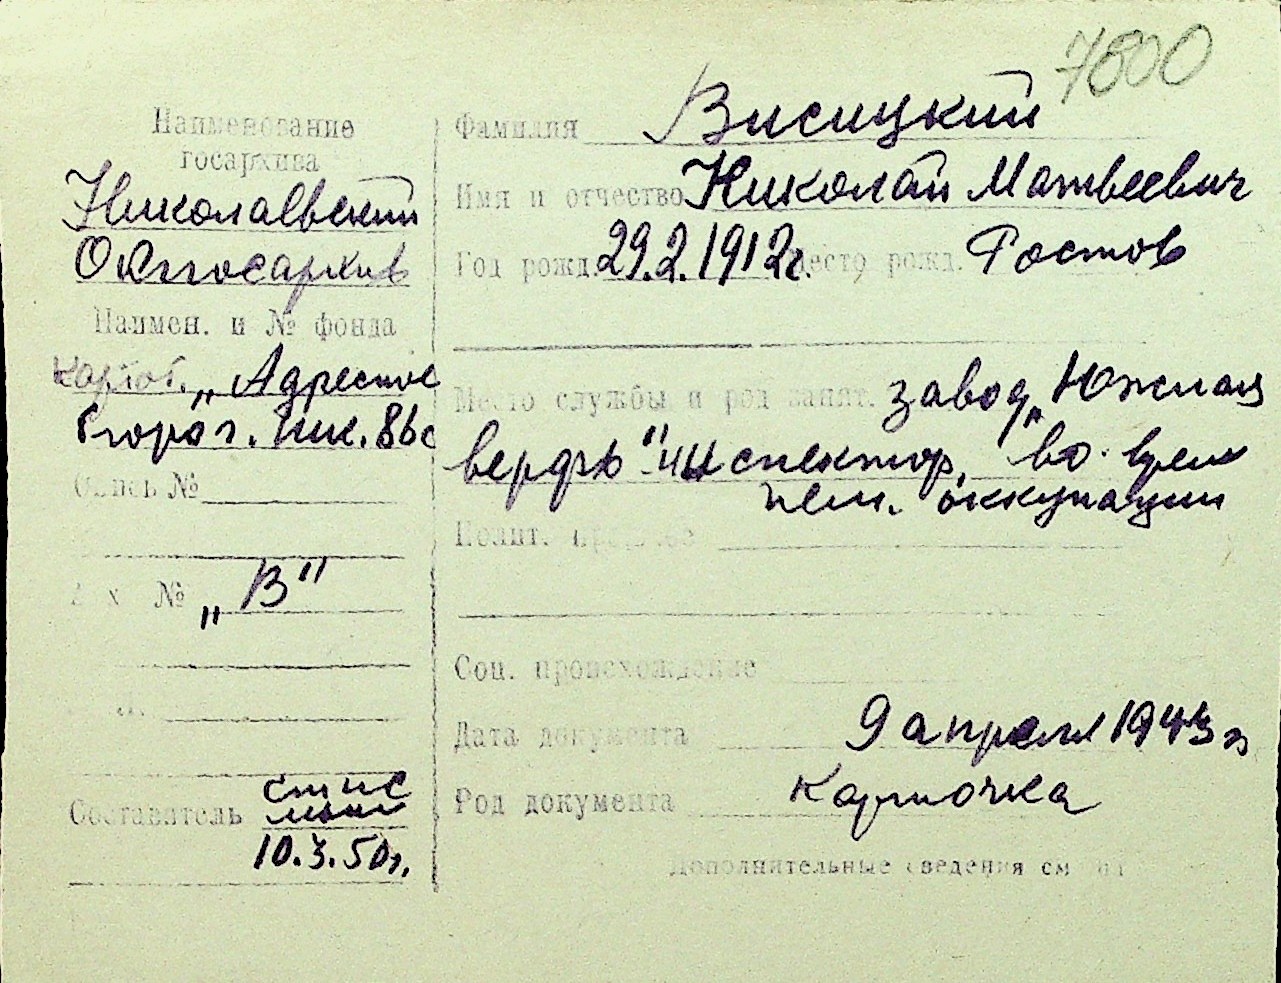 7800
Наименование
госархива
Николаевский
Облгосархив
Наимен. и № фонда
Картот. „Адресное
бюро г. Ник.
Опись №
№ „В"
Л.
Составитель
10.3.50г.
Фамилия Висицкий
Имя и отчество Николай Матвеевич
Год рожд. 29.2.1912г. Место рожд. Ростов
Место службы и род занят. завод „Южная
верфь" инспектор, во время
нем. оккупации
Полит.
Соц. происхождение
Дата документа 9 апреля 1943 г
Род документа Карточка
Дополнительные сведения см